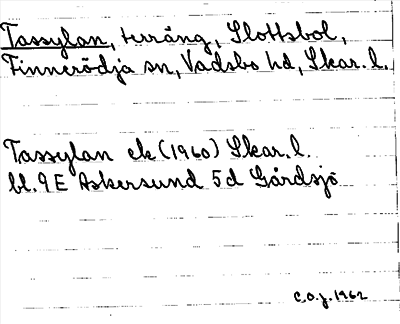 Tassylan, terräng, Slottsbol,
Finnerödja sn, Vadsbo hd, Skar. l.
Tassylan ek (1960) Skar. l.
bl. 9E Askersund 5d Gårdsjö
C.O.J. 1962